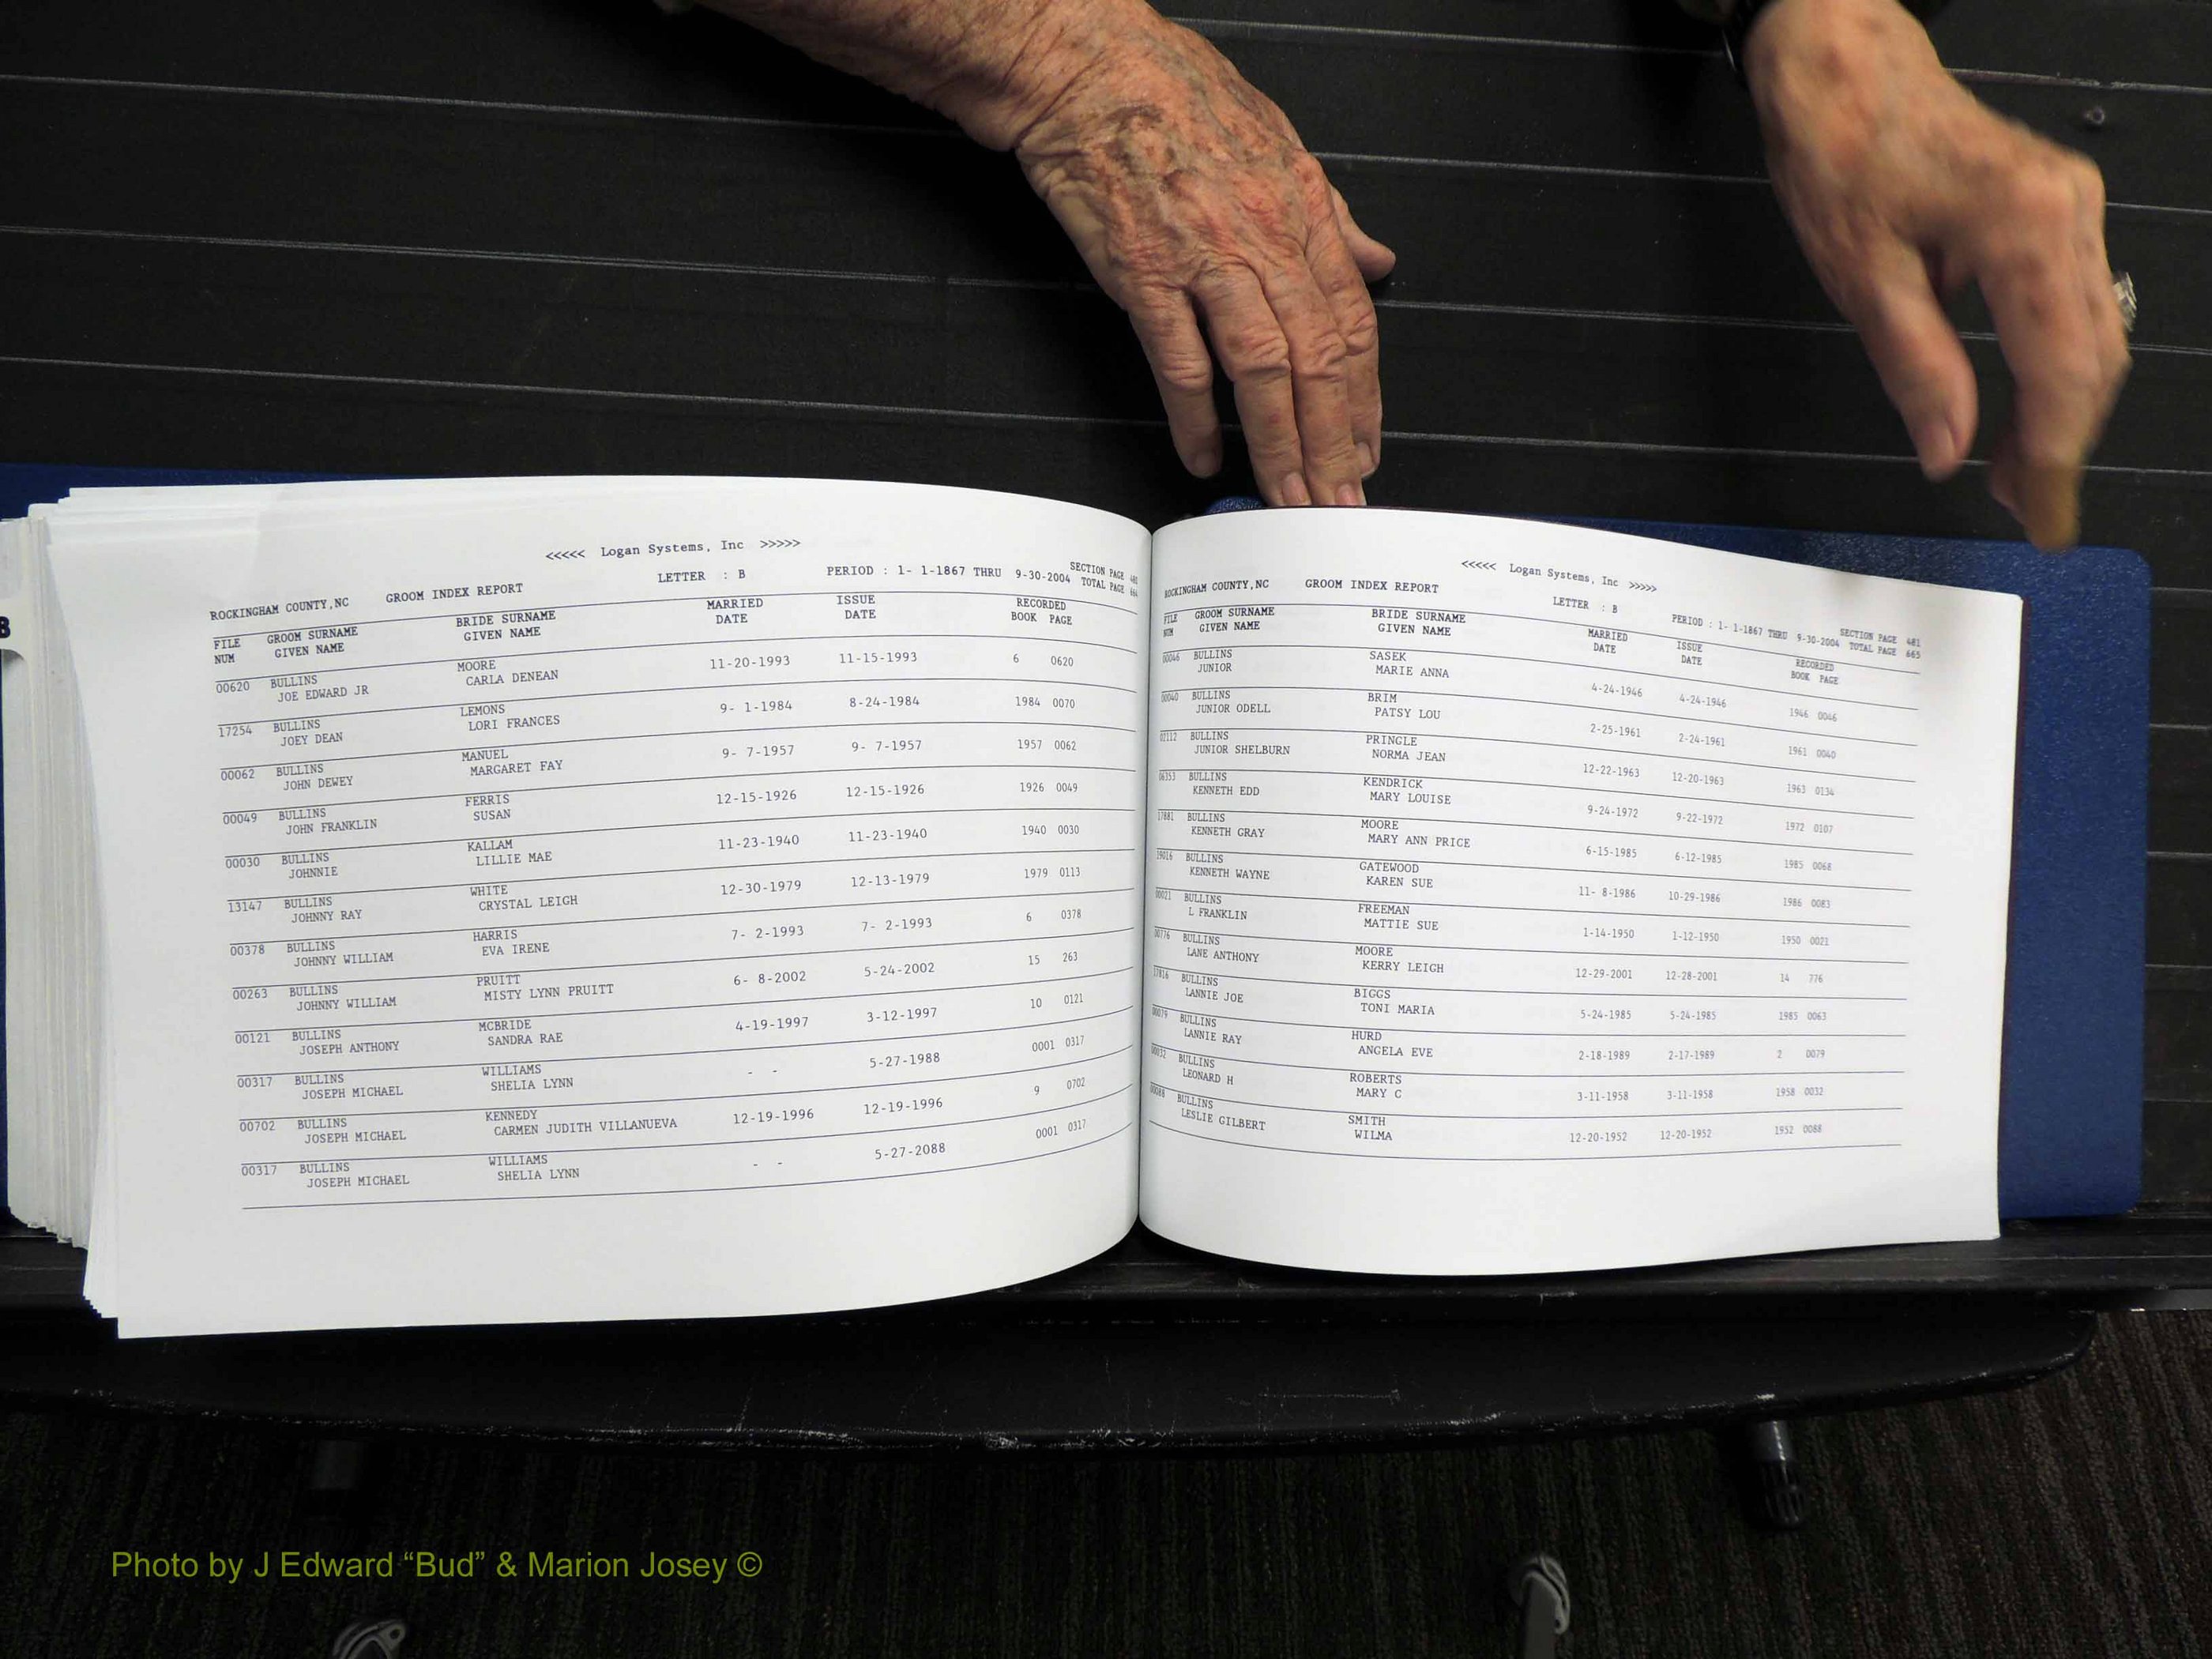 B
<<<<< Logan Systems, Inc >>>>>
ROCKINGHAM COUNTY,NC GROOM INDEX REPORT LETTER : B PERIOD : 1- 1-1867 THRU 9-30-2004 SECTION PAGE
TOTAL PAGE
FILE GROOM SURNAME BRIDE SURNAME MARRIED ISSUE RECORDED
NUM GIVEN NAME GIVEN NAME DATE DATE BOOK PAGE
00620 BULLINS MOORE 11-20-1993 11-15-1993 6 0620
JOE EDWARD JR CARLA DENEAN
17254 BULLINS LEMONS 9- 1-1984 8-24-1984 1984 0070
JOEY DEAN LORI FRANCES
00062 BULLINS MANUEL 9- 7-1957 9- 7-1957 1957 0062
JOHN DEWEY MARGARET FAY
00049 BULLINS FERRIS 12-15-1926 12-15-1926 1926 0049
JOHN FRANKLIN SUSAN
00030 BULLINS KALLAM 11-23-1940 11-23-1940 1940 0030
JOHNNIE LILLIE MAE
13147 BULLINS WHITE 12-30-1979 12-13-1979 1979 0113
JOHNNY RAY CRYSTAL LEIGH
00378 BULLINS HARRIS 7- 2-1993 7- 2-1993 6 0378
JOHNNY WILLIAM EVA IRENE
00263 BULLINS PRUITT 6- 8-2002 5-24-2002 15 263
JOHNNY WILLIAM MISTY LYNN PRUITT
00121 BULLINS MCBRIDE 4-19-1997 3-12-1997 10 0121
JOSEPH ANTHONY SANDRA RAE
00317 BULLINS WILLIAMS - - 5-27-1988 0001 0317
JOSEPH MICHAEL SHELIA LYNN
00702 BULLINS KENNEDY 12-19-1996 12-19-1996 9 0702
JOSEPH MICHAEL CARMEN JUDITH VILLANUEVA
00317 BULLINS WILLIAMS - - 5-27-2088 0001 0317
JOSEPH MICHAEL SHELIA LYNN
<<<<< Logan Systems, Inc >>>>>
ROCKINGHAM COUNTY,NC GROOM INDEX REPORT LETTER : B PERIOD : 1- 1-1867 THRU 9-30-2004 SECTION PAGE 481
TOTAL PAGE 665
FILE GROOM SURNAME BRIDE SURNAME MARRIED ISSUE RECORDED
NUM GIVEN NAME GIVEN NAME DATE DATE BOOK PAGE
00046 BULLINS SASEK 4-24-1946 4-24-1946 1946 0046
JUNIOR MARIE ANNA
00040 BULLINS BRIM 2-25-1961 2-24-1961 1961 0040
JUNIOR ODELL PATSY LOU
02112 BULLINS PRINGLE 12-22-1963 12-20-1963 1963 0134
JUNIOR SHELBURN NORMA JEAN
06353 BULLINS KENDRICK 9-24-1972 9-22-1972 1972 0107
KENNETH EDD MARY LOUISE
17881 BULLINS MOORE 6-15-1985 6-12-1985 1985 0068
KENNETH GRAY MARY ANN PRICE
19016 BULLINS GATEWOOD 11- 8-1986 10-29-1986 1986 0083
KENNETH WAYNE KAREN SUE
00021 BULLINS FREEMAN 1-14-1950 1-12-1950 1950 0021
L FRANKLIN MATTIE SUE
00776 BULLINS MOORE 12-29-2001 12-28-2001 14 776
LANE ANTHONY KERRY LEIGH
17816 BULLINS BIGGS 5-24-1985 5-24-1985 1985 0063
LANNIE JOE TONI MARIA
00079 BULLINS HURD 2-18-1989 2-17-1989 2 0079
LANNIE RAY ANGELA EVE
00032 BULLINS ROBERTS 3-11-1958 3-11-1958 1958 0032
LEONARD H MARY C
00088 BULLINS SMITH 12-20-1952 12-20-1952 1952 0088
LESLIE GILBERT WILMA
Photo by J Edward “Bud” & Marion Josey ©